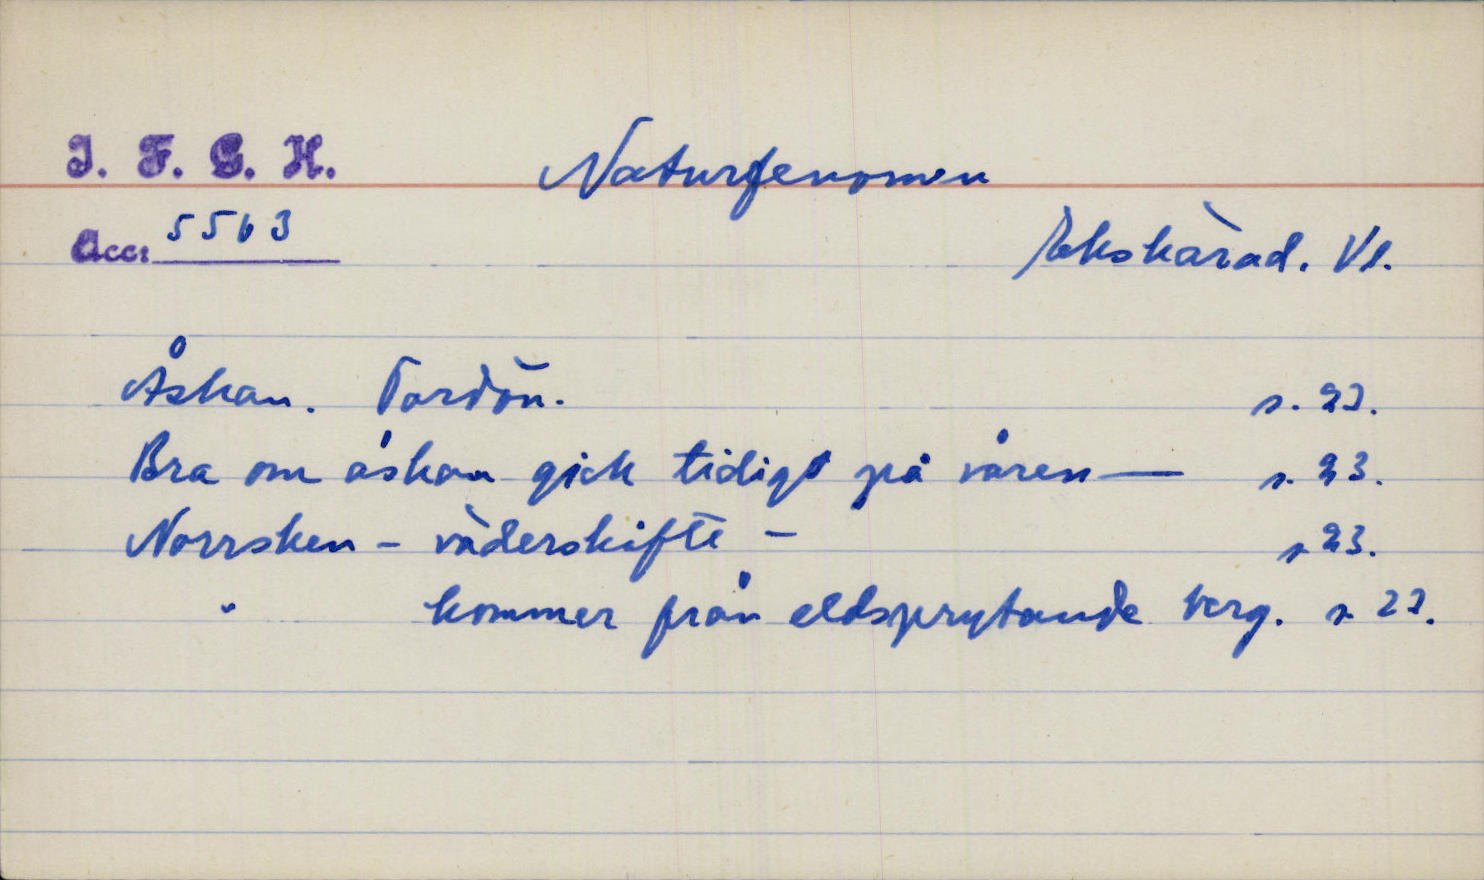 I. F. G. H.
Naturfenomen
Acc: 5563
Ekshärad. Vl.
Åskan. Tordön. s. 23.
Bra om åskan gick tidigt på våren — s. 23.
Norrsken - väderskifte - s 23.
" kommer från eldsprutande berg. s 23.